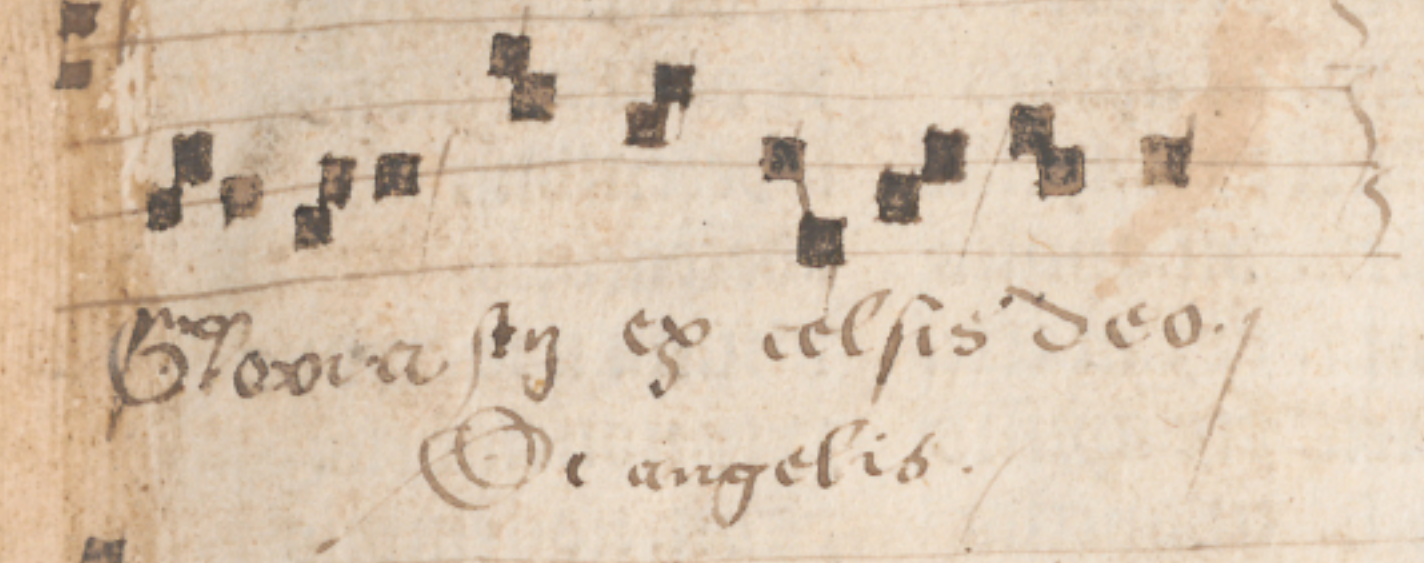 Gloria in ex celsis deo.
De angelis.